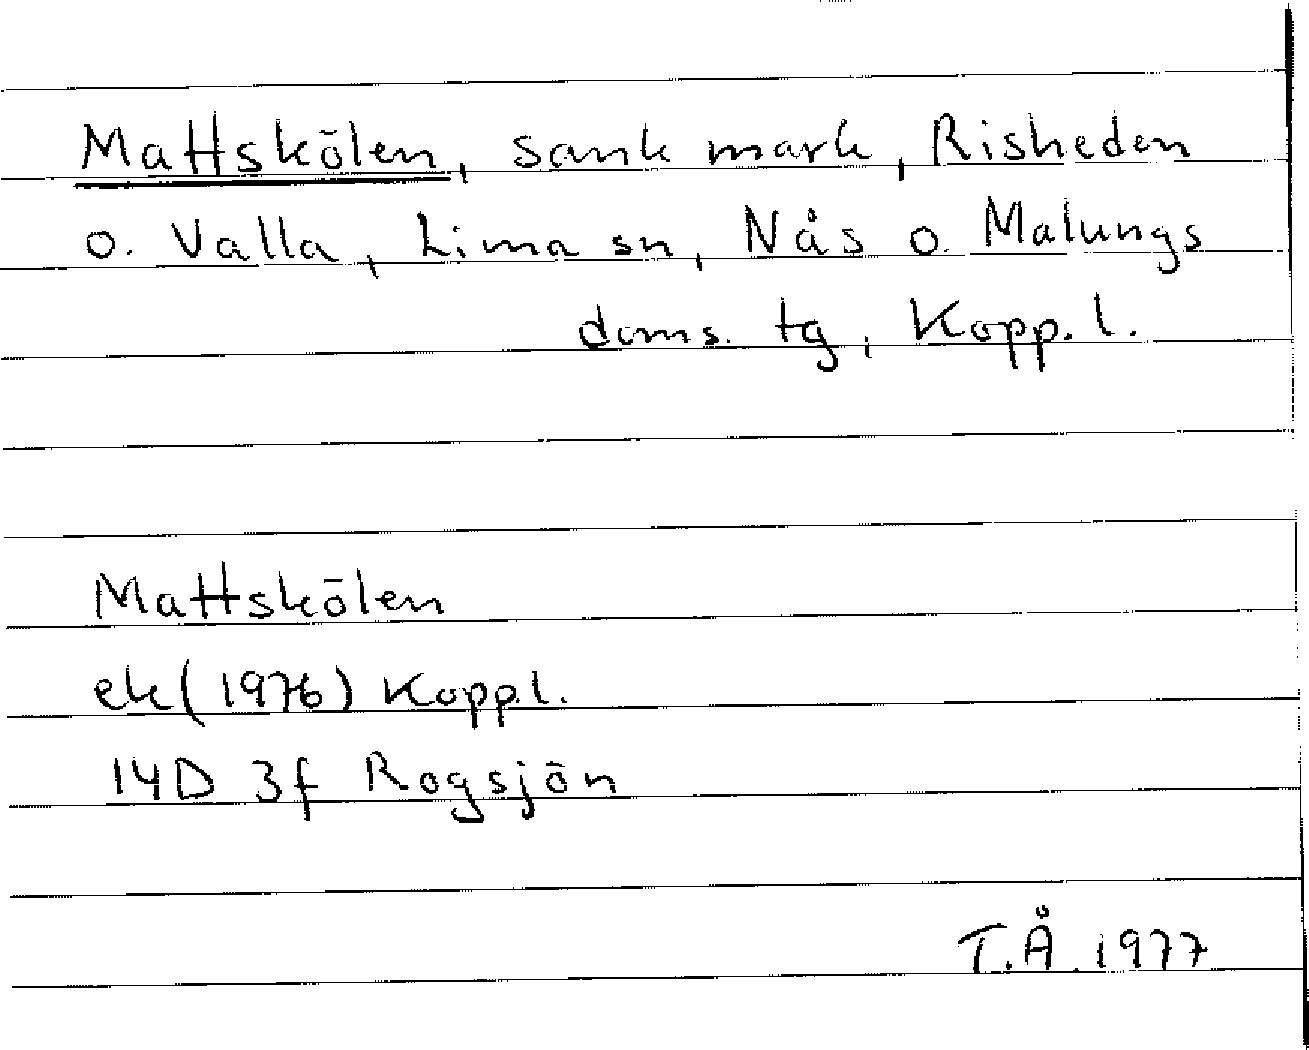 Mattskölen, sank mark, Risheden
o. Valla, Lima sn, Nås o. Malungs
doms. tg, Kopp. l.
Mattskölen
ek (1976) Kopp.l.
14D 3f Rogsjön
T.Å. 1977